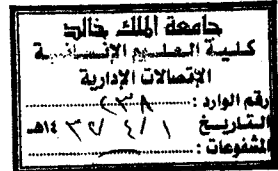 جامعة الملك خالد
كلية العلوم الإنسانية
الإتصالات الإدارية
رقم الوارد : ٢٣٨
التاريخ ١ / ٤ / ٣٢ ١٤هـ
المشفوعات :